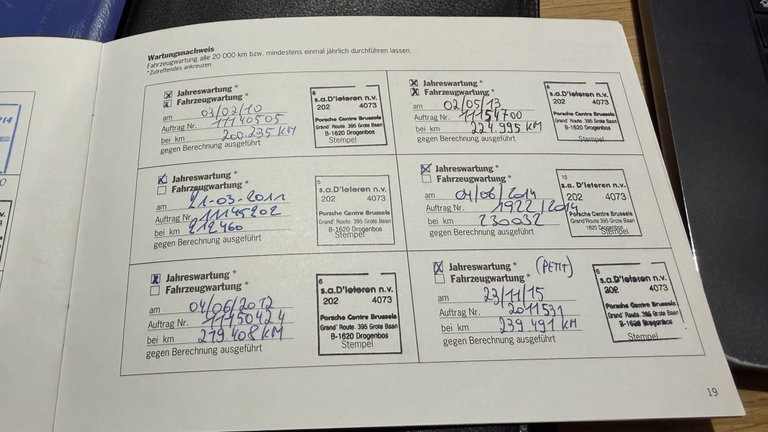 Wartungsnachweis
Fahrzeugwartung alle 20 000 km bzw. mindestens einmal jährlich durchführen lassen.
*Zutreffendes ankreuzen
Jahreswartung *
Fahrzeugwartung *
am 03/02/10
Auftrag Nr. 11140505
bei km 200.235 KM
gegen Berechnung ausgeführt
s.a.D'Ieteren n.v.
202 4073
Porsche Centre Brussels
Grand' Route 395 Grote Baan
B-1620 Drogenbos
Stempel
Jahreswartung *
Fahrzeugwartung *
am 02/05/13
Auftrag Nr. 11154700
bei km 224.995 KM
gegen Berechnung ausgeführt
s.a.D'Ieteren n.v.
202 4073
Porsche Centre Brussels
Grand' Route 395 Grote Baan
B-1620 Drogenbos
Stempel
Jahreswartung *
Fahrzeugwartung *
am 21-03-2011
Auftrag Nr. 11145202
bei km 212460
gegen Berechnung ausgeführt
s.a.D'Ieteren n.v.
202 4073
Porsche Centre Brussels
Grand' Route 395 Grote Baan
B-1620 Drogenbos
Stempel
Jahreswartung *
Fahrzeugwartung *
am 04/06/2014
Auftrag Nr. 1922/2014
bei km 230032
gegen Berechnung ausgeführt
15
s.a.D'Ieteren n.v.
202 4073
Porsche Centre Brussels
Grand' Route 395 Grote Baan
1620 Drogenbos
Stempel
Jahreswartung *
Fahrzeugwartung *
am 04/06/2012
Auftrag Nr. 11150424
bei km 219.408 KM
gegen Berechnung ausgeführt
6
s.a.D'Ieteren n.v.
202 4073
Porsche Centre Brussels
Grand' Route 395 Grote Baan
B-1620 Drogenbos
Stempel
Jahreswartung * (PETIT)
Fahrzeugwartung *
am 23/11/15
Auftrag Nr. 2011531
bei km 239.491 KM
gegen Berechnung ausgeführt
6
s.a.D'Ieteren n.v.
202 4073
Porsche Centre Brussels
Grand' Route 395 Grote Baan
B-1620 Drogenbos
Stempel
19